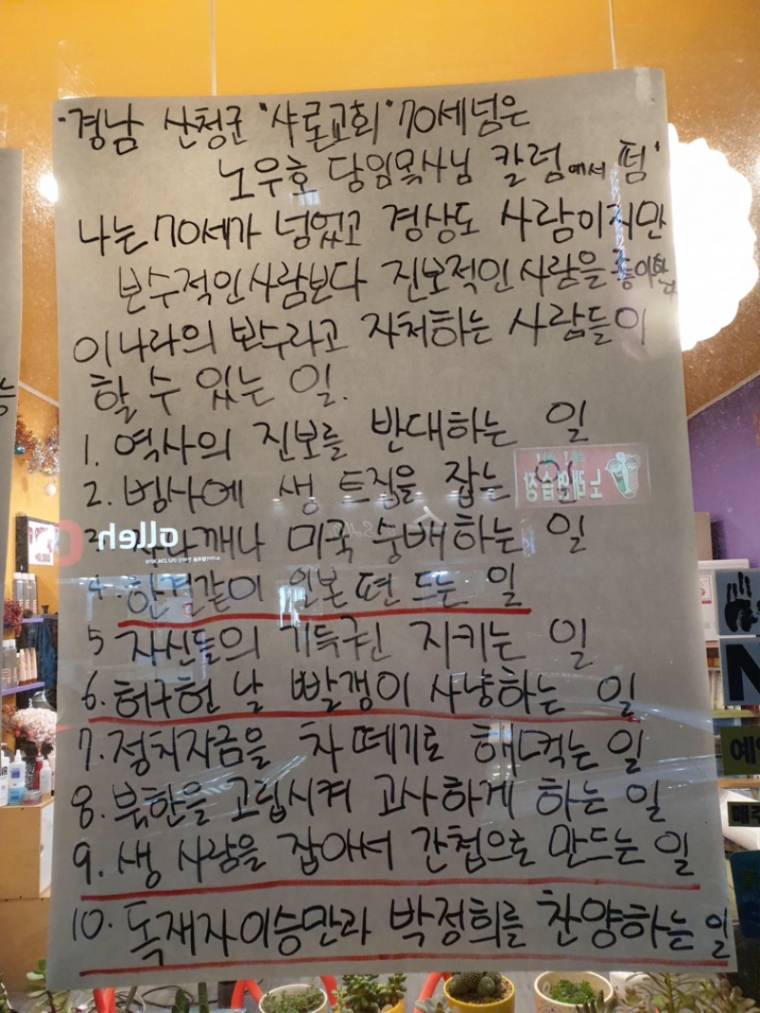 "경남 산청군 "샤론교회" 70세넘은
노우호 당임목사님 칼럼에서 펌"
나는 70세가 넘었고 경상도 사람이지만
보수적인사람보다 진보적인 사람을 좋아한다
이나라의 보수라고 자처하는 사람들이
할 수 있는 일.
1. 역사의 진보를 반대하는 일
2. 범사에 생 트집을 잡는 일
3. 자나깨나 미국 숭배하는 일
4. 한결같이 일본편 드는 일
5 자신들의 기득권 지키는 일
6. 허구헌 날 빨갱이 사냥하는 일
7. 정치자금을 차떼기로 해먹는 일
8. 북한을 고립시켜 고사하게 하는 일
9. 생 사람을 잡아서 간첩으로 만드는 일
10. 독재자이승만과 박정희를 찬양하는 일
노래연습장
olleh
N